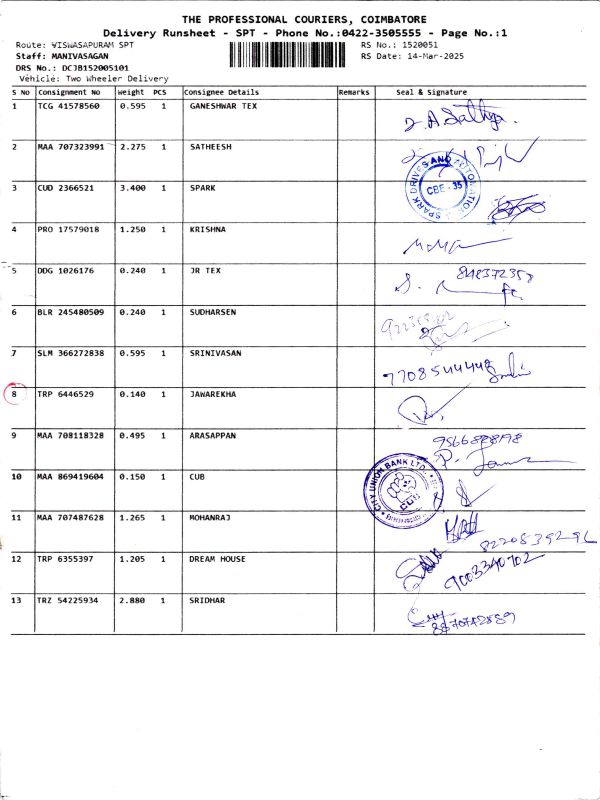 THE PROFESSIONAL COURIERS, COIMBATORE
Delivery Runsheet - SPT - Phone No.:0422-3505555 - Page No.:1
Route: VISWASAPURAM SPT RS No.: 1520051
Staff: MANIVASAGAN RS Date: 14-Mar-2025
DRS No.: DCJB152005101
Vehicle: Two Wheeler Delivery
S No Consignment No Weight PCS Consignee Details Remarks Seal & Signature
1 TCG 41578560 0.595 1 GANESHWAR TEX
2 MAA 707323991 2.275 1 SATHEESH
SPARK DRIVES AND AUTOMATION
CBE - 35
3 CUD 2366521 3.400 1 SPARK
4 PRO 17579018 1.250 1 KRISHNA
5 DDG 1026176 0.240 1 JR TEX
6 BLR 245480509 0.240 1 SUDHARSEN
7 SLM 366272838 0.595 1 SRINIVASAN
7708544448
8 TRP 6446529 0.140 1 JAWAREKHA
9 MAA 708118328 0.495 1 ARASAPPAN
10 MAA 869419604 0.150 1 CUB
CITY UNION BANK LTD.
CUB
11 MAA 707487628 1.265 1 MOHANRAJ
8220839296
12 TRP 6355397 1.205 1 DREAM HOUSE
13 TRZ 54225934 2.880 1 SRIDHAR